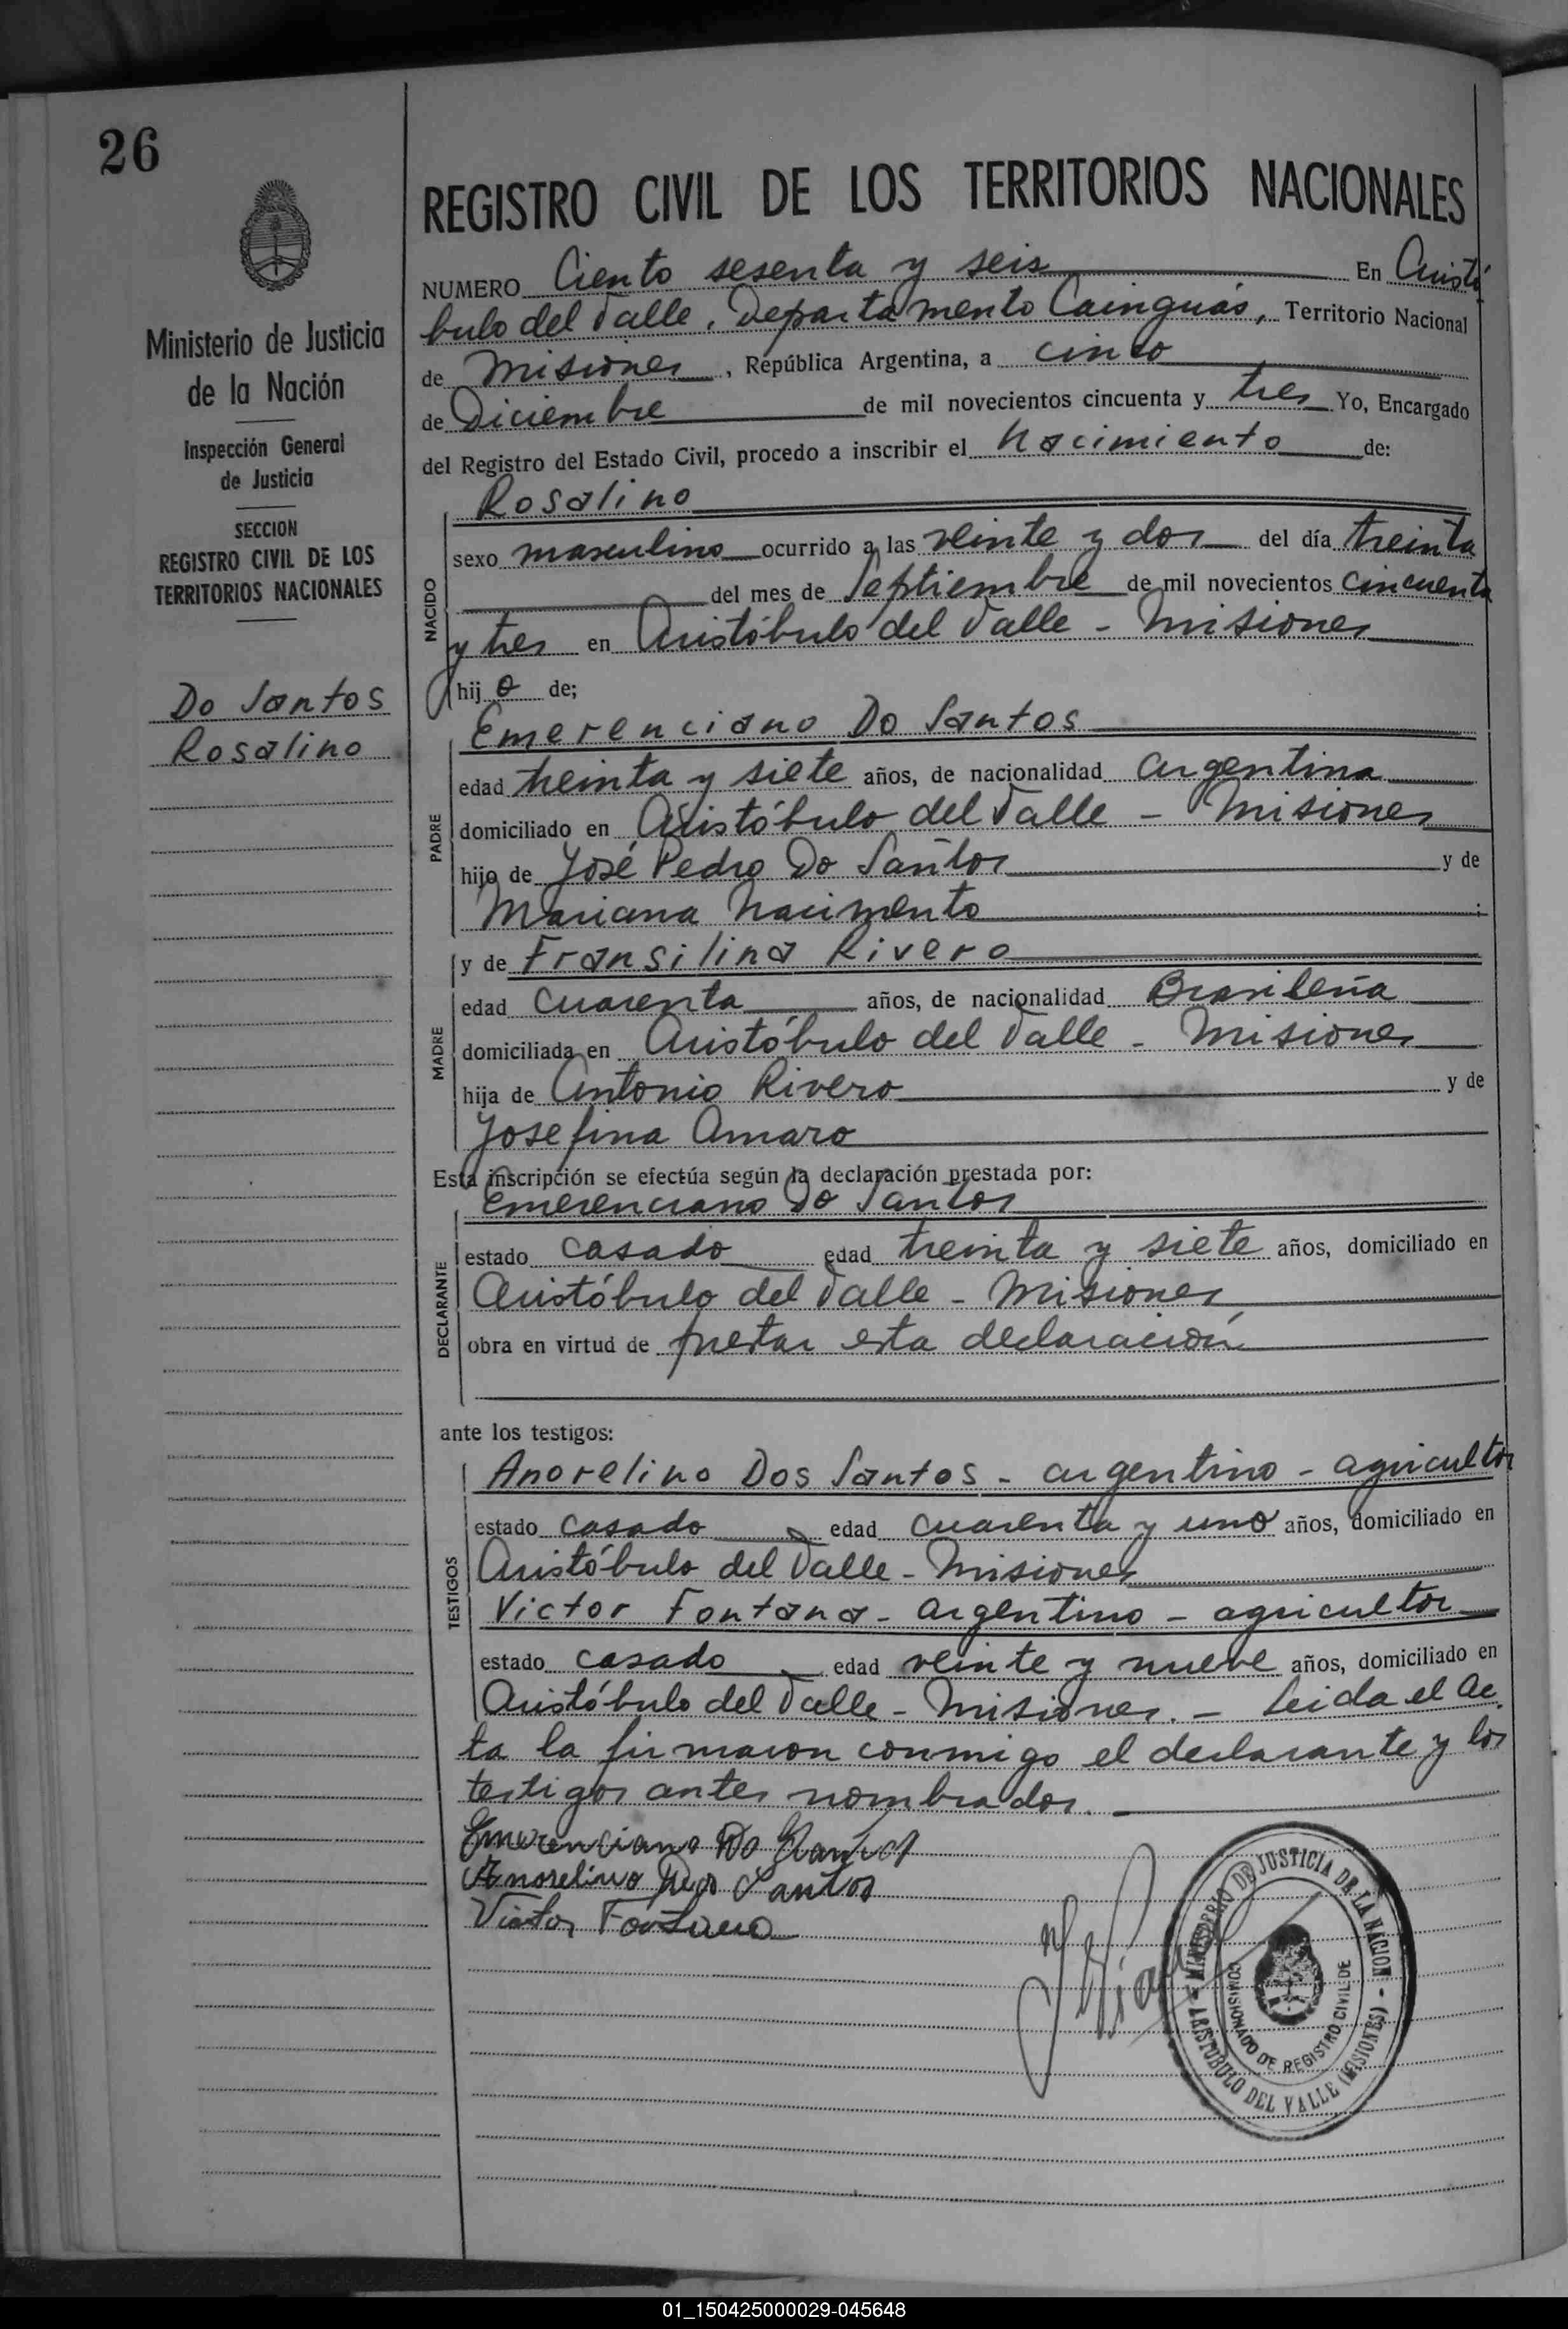 26
Ministerio de Justicia
de la Nación
Inspección General
de Justicia
SECCION
REGISTRO CIVIL DE LOS
TERRITORIOS NACIONALES
Do Santos
Rosalino
REGISTRO CIVIL DE LOS TERRITORIOS NACIONALES
NUMERO Ciento sesenta y seis En Aristó
bulo del Valle, Departamento Cainguás, Territorio Nacional
de Misiones, República Argentina, a cinco
de Diciembre de mil novecientos cincuenta y tres Yo, Encargado
del Registro del Estado Civil, procedo a inscribir el Nacimiento de:
NACIDO
Rosalino
sexo masculino ocurrido a las veinte y dos del día treinta
del mes de Septiembre de mil novecientos cincuenta
y tres en Aristóbulo del Valle - Misiones
hijo de;
PADRE
Emerenciano Do Santos
edad treinta y siete años, de nacionalidad argentina
domiciliado en Aristóbulo del Valle - Misiones
hijo de José Pedro Do Santos y de
Mariana Nacimento ;
MADRE
y de Fransilina Rivero
edad cuarenta años, de nacionalidad Brasileña
domiciliada en Aristóbulo del Valle - Misiones
hija de Antonio Rivero y de
Josefina Amaro
Esta inscripción se efectúa según la declaración prestada por:
DECLARANTE
Emerenciano Do Santos
estado casado edad treinta y siete años, domiciliado en
Aristóbulo del Valle - Misiones
obra en virtud de prestar esta declaración
ante los testigos:
TESTIGOS
Anorelino Dos Santos - argentino - agricultor
estado casado edad cuarenta y uno años, domiciliado en
Aristóbulo del Valle - Misiones
Victor Fontana - argentino - agricultor
estado casado edad veinte y nueve años, domiciliado en
Aristóbulo del Valle - Misiones. - Leida el ac
ta la firmaron conmigo el declarante y los
testigos antes nombrados.
Emerenciano Do Santos
Anorelino Dos Santos
Victor Fontana
MINISTERIO DE JUSTICIA DE LA NACION
COMISIONADO DE REGISTRO CIVIL DE
- ARISTOBULO DEL VALLE (MISIONES) -
01_150425000029-045648